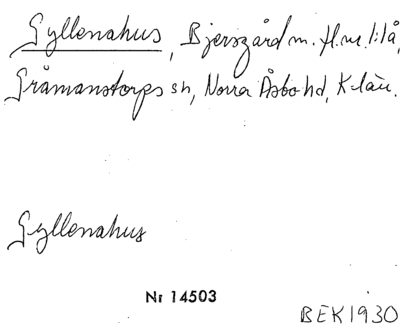 Gyllenahus, Bjersgård m. fl. nr 1:1å,
Gråmanstorps sn, Norra Åsbo hd, K-län.
Gyllenahus
Nr 14503
BEK 1930